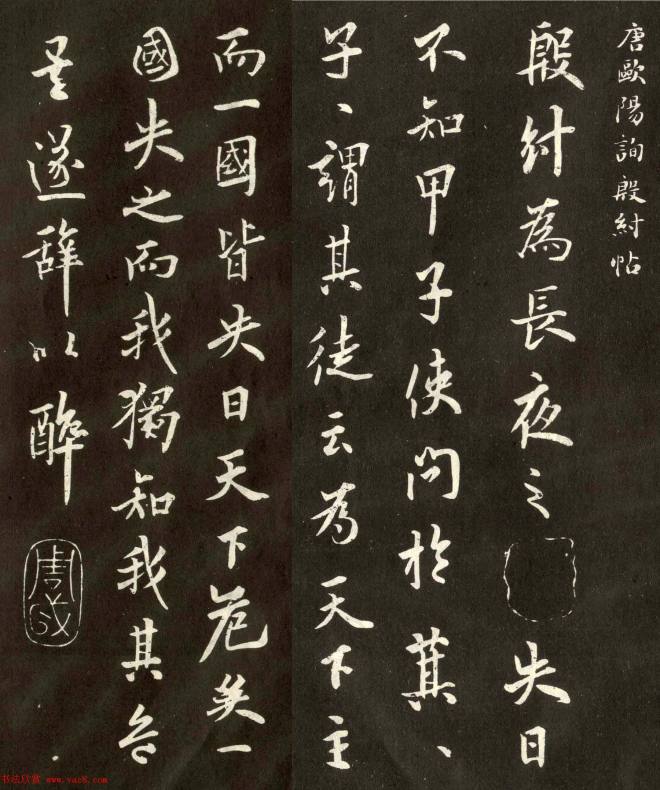 唐歐陽詢殷紂帖
殷紂為長夜之失日
不知甲子使問於萁、
子、謂其徒云為天下主
而一國皆失日天下危矣一
國失之而我獨知我其危
矣遂辭以醉
书法欣赏 www.yac8.com